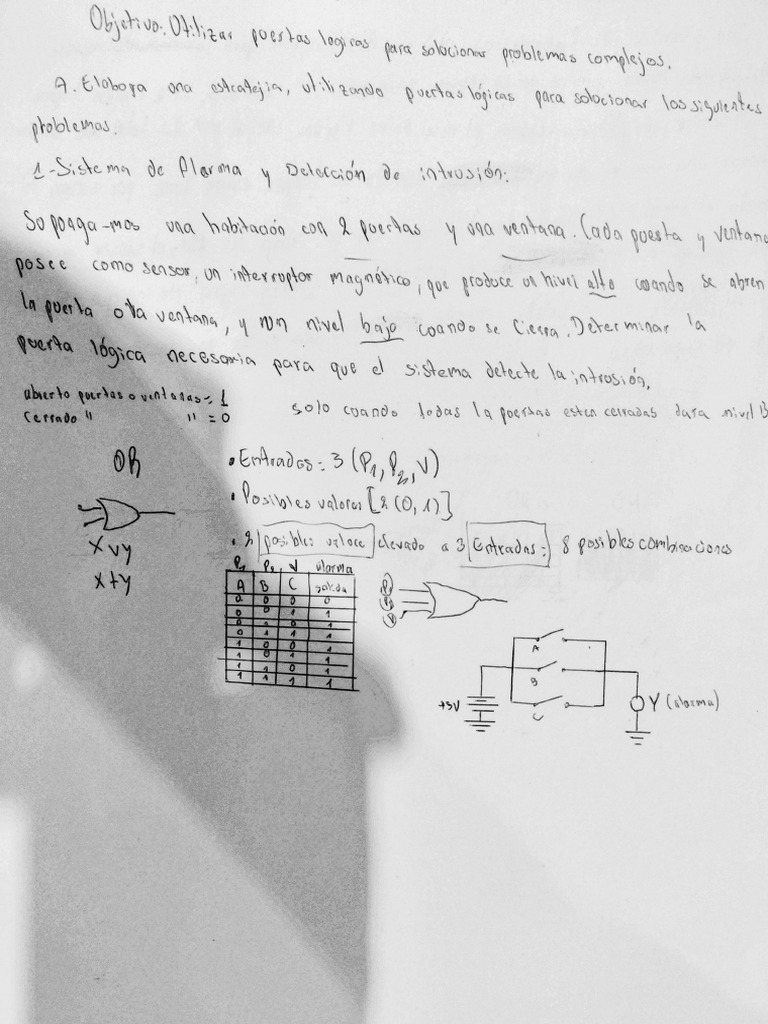 Objetivo: Utilizar puertas logicas para solucionar problemas complejos.
A. Elabora una estratejia, utilizando puertas lógicas para solucionar los siguientes
problemas.
1-Sistema de Alarma y Detección de intrusión:
Soponga-mos una habitación con 2 puertas y una ventana. Cada puesta y ventana
posee como sensor, un interruptor magnético, que produce un nivel alto cuando se abren
la puerta o la ventana, y un nivel bajo cuando se cierra. Determinar la
puerta lógica necesaria para que el sistema detecte la intrusión.
abierto puertas o ventanas = 1
cerrado " " = 0
solo cuando todas la puertas esten cerradas dara nivel B
OR
x v y
x + y
• Entradas = 3 (P1, P2, V)
• Posibles valores [2 (0, 1)]
• 2 posibles valore elevado a 3 Entradas = 8 posibles combinaciones
P1 P2 V alarma
A B C salida
0 0 0 0
0 0 1 1
0 1 0 1
0 1 1 1
1 0 0 1
1 0 1 1
1 1 0 1
1 1 1 1
P1
P2
V
A
B
C
+5V
Y (alarma)